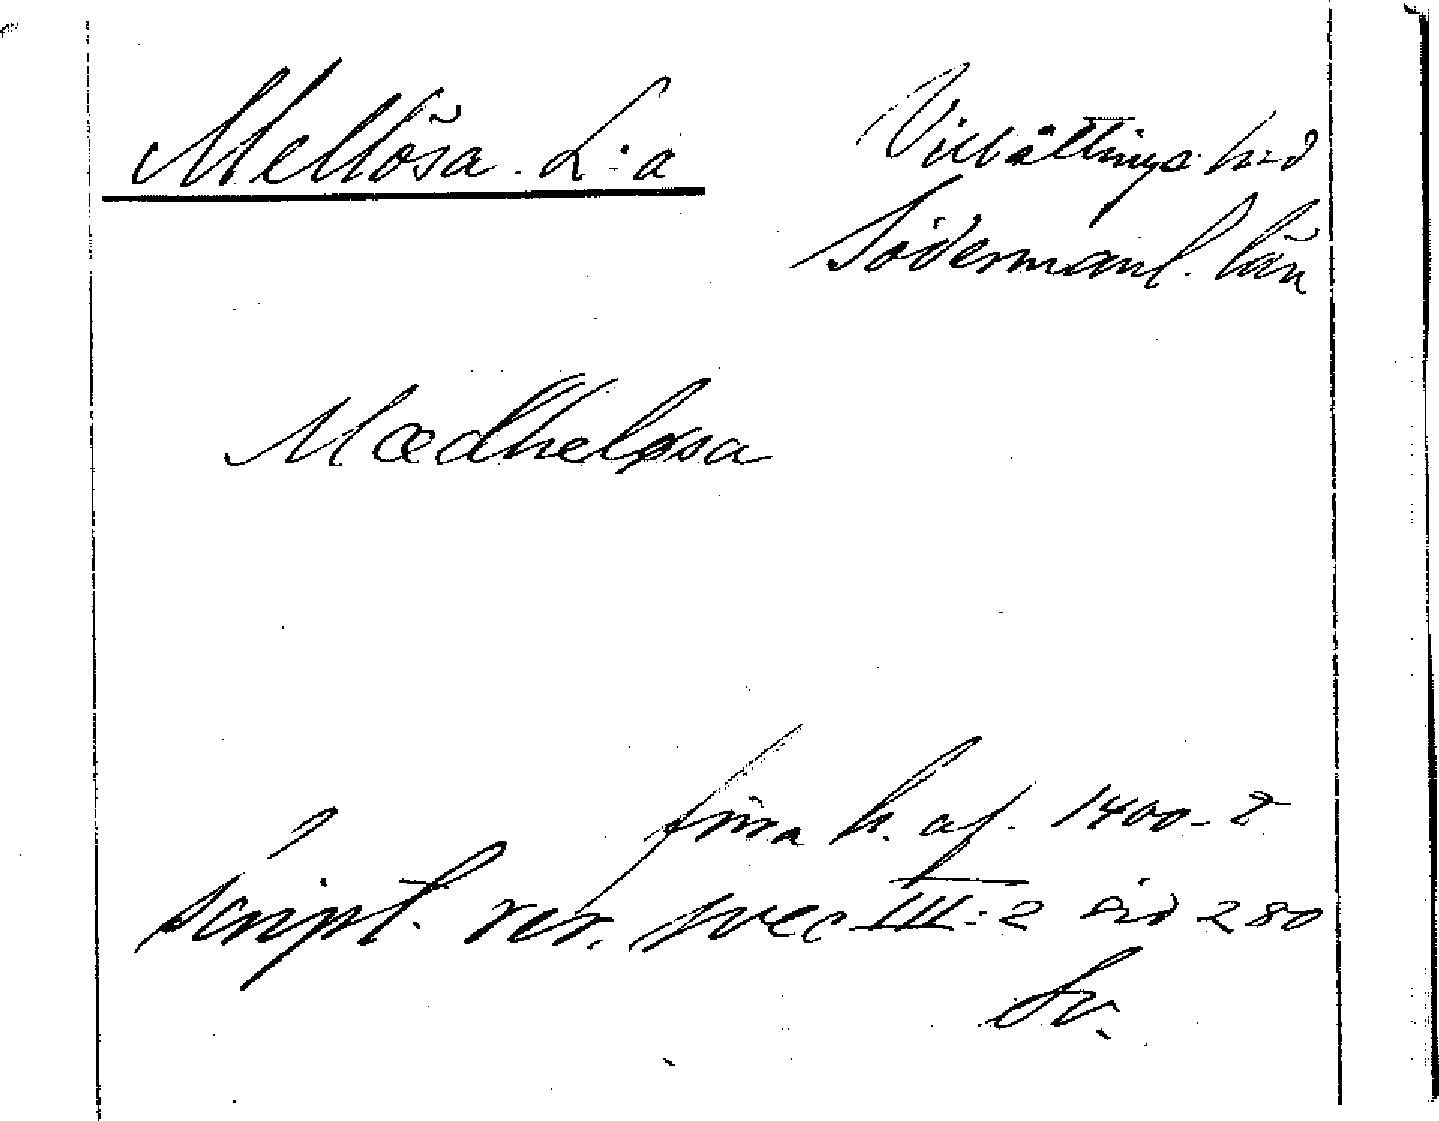 Mellösa. L:a
Villåttinge h:d
Södermanl. län
Mædheløsa
förra h. af. 1400-t
script. rer. svec III:2 sid 280
Sv.